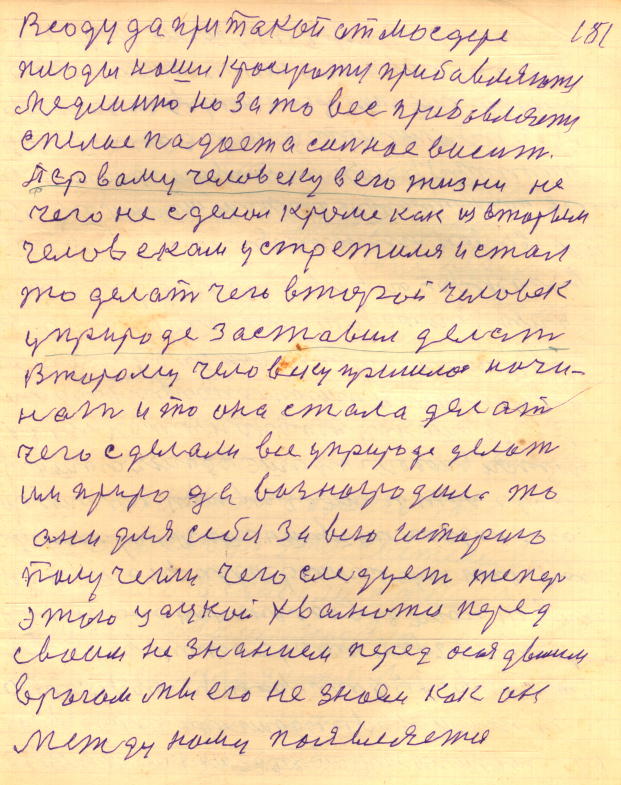 Всоду да при такой атмосфере 181
плоды наши красуюти прибавляюти
медлинно но за то все прибовляети
спелае падоет а силное висит.
Первому человеку в его жизни не
чего не сделол кроме как из вторим
человекам устретился и стал
то делат чего второй человек
у природе заставил делат
Второму человеку пришлос начи-
нат и то она стала делат
чего сделали все у природе делат
им природа вазнаградила то
они для себя за всю историю
получели чего следует тепер
этого уацкой хвалюти перед
своим не знанием перед
врагом мы его не знаем как он
между нами появляетя